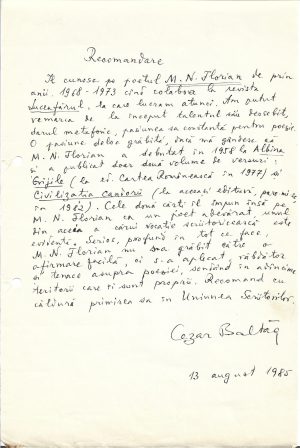 Recomandare
Îl cunosc pe poetul M. N. Florian de prin
anii 1968-1973 cînd colabora la revista
Luceafărul, la care lucram atunci. Am putut
remarca de la început talentul său deosebit,
darul metaforic, pasiunea sa constantă pentru poezie.
O pasiune deloc grăbită, dacă mă gîndesc că
M. N. Florian a debutat în 1958 la Albina
și a publicat doar două volume de versuri:
Grijile (la ed. Cartea Românească în 1977) și
Civilizația Candorii (la aceeași editură, pare-mi-se
în 1982). Cele două cărți îl impun însă pe
M. N. Florian ca un poet adevărat, unul
din aceia a căror vocație scriitoricească este
evidentă. Serios, profund în tot ce face,
M. N. Florian nu s-a grăbit către o
afirmare facilă, ci s-a aplicat, răbdător
și tenace asupra poeziei, sondînd în adîncime
teritorii care îi sunt proprii. Recomand cu
căldură primirea sa în Uniunea Scriitorilor.
Cezar Baltag
13 august 1985